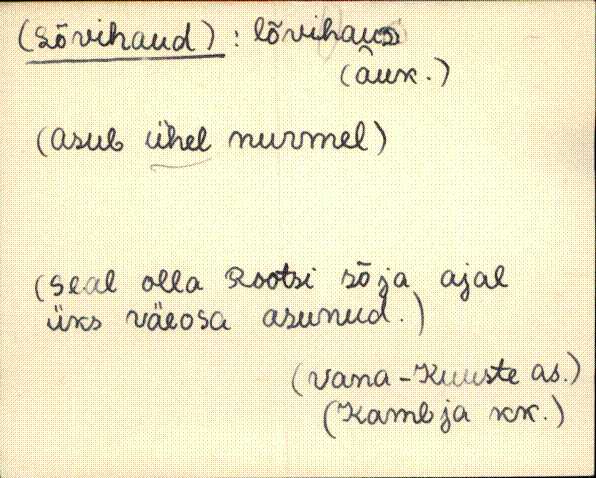 (Sõvihaud) : lõvihaus
(âuk.)
(asub ühel nurmel)
(seal olla Rootsi sõja ajal
üks väeosa asunud.)
(Vana-Kuuste as.)
(Kambja kk.)